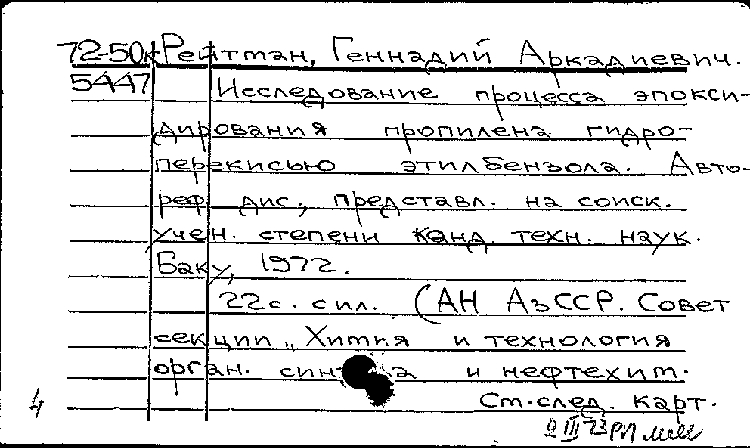 72-50к Рейтман, Геннадий Аркадиевич.
5447 Исследование процесса эпокси-
дирования пропилена гидро-
перекисью этилбензола. Авто-
реф. дис., представл. на соиск.
учен. степени канд. техн. наук.
Баку, 1972.
22с. с ил. (АН АзССР. Совет
секции „Химия и технология
орган. синтеза и нефтехим.
См. след. карт.
4